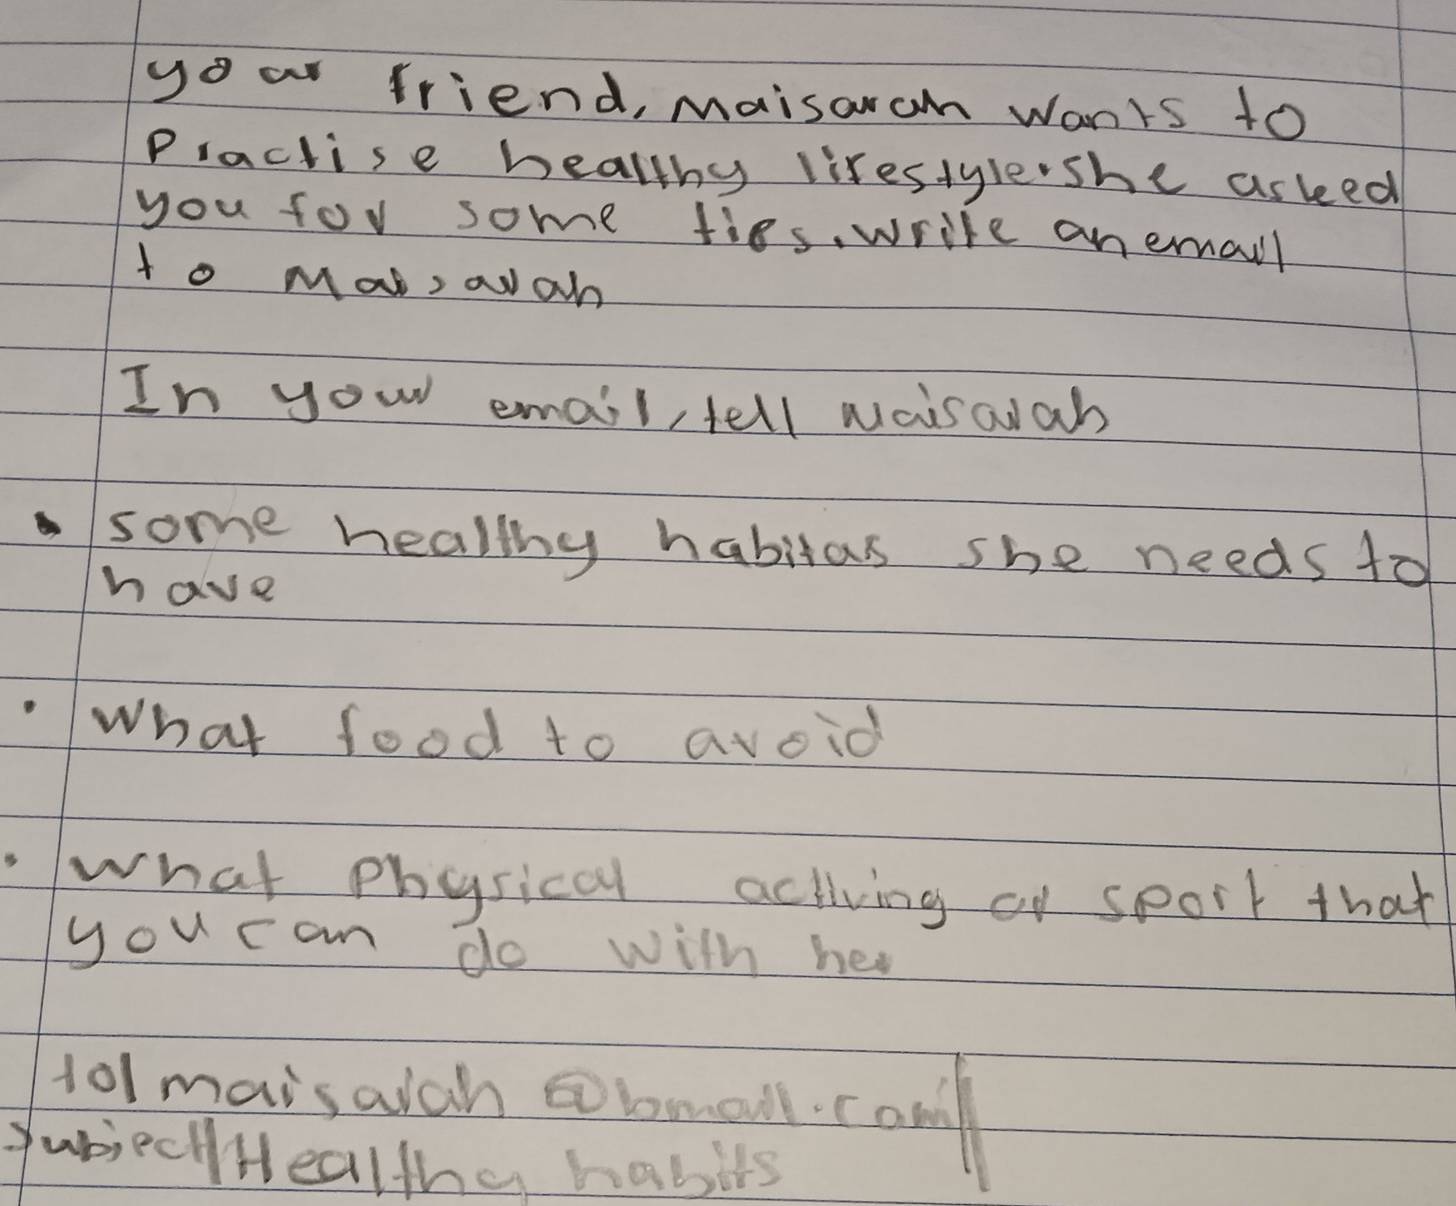 your friend, Maisarah wants to
Practise healthy lifestyle. she asked
you for some tips. write an email
to Maisarah
In your email, tell Maisarah
• some healthy habitas she needs to
have
• what food to avoid
• what physical activing or sport that
you can do with her
to| maisarah @bmail.com
subject| Healthy habits